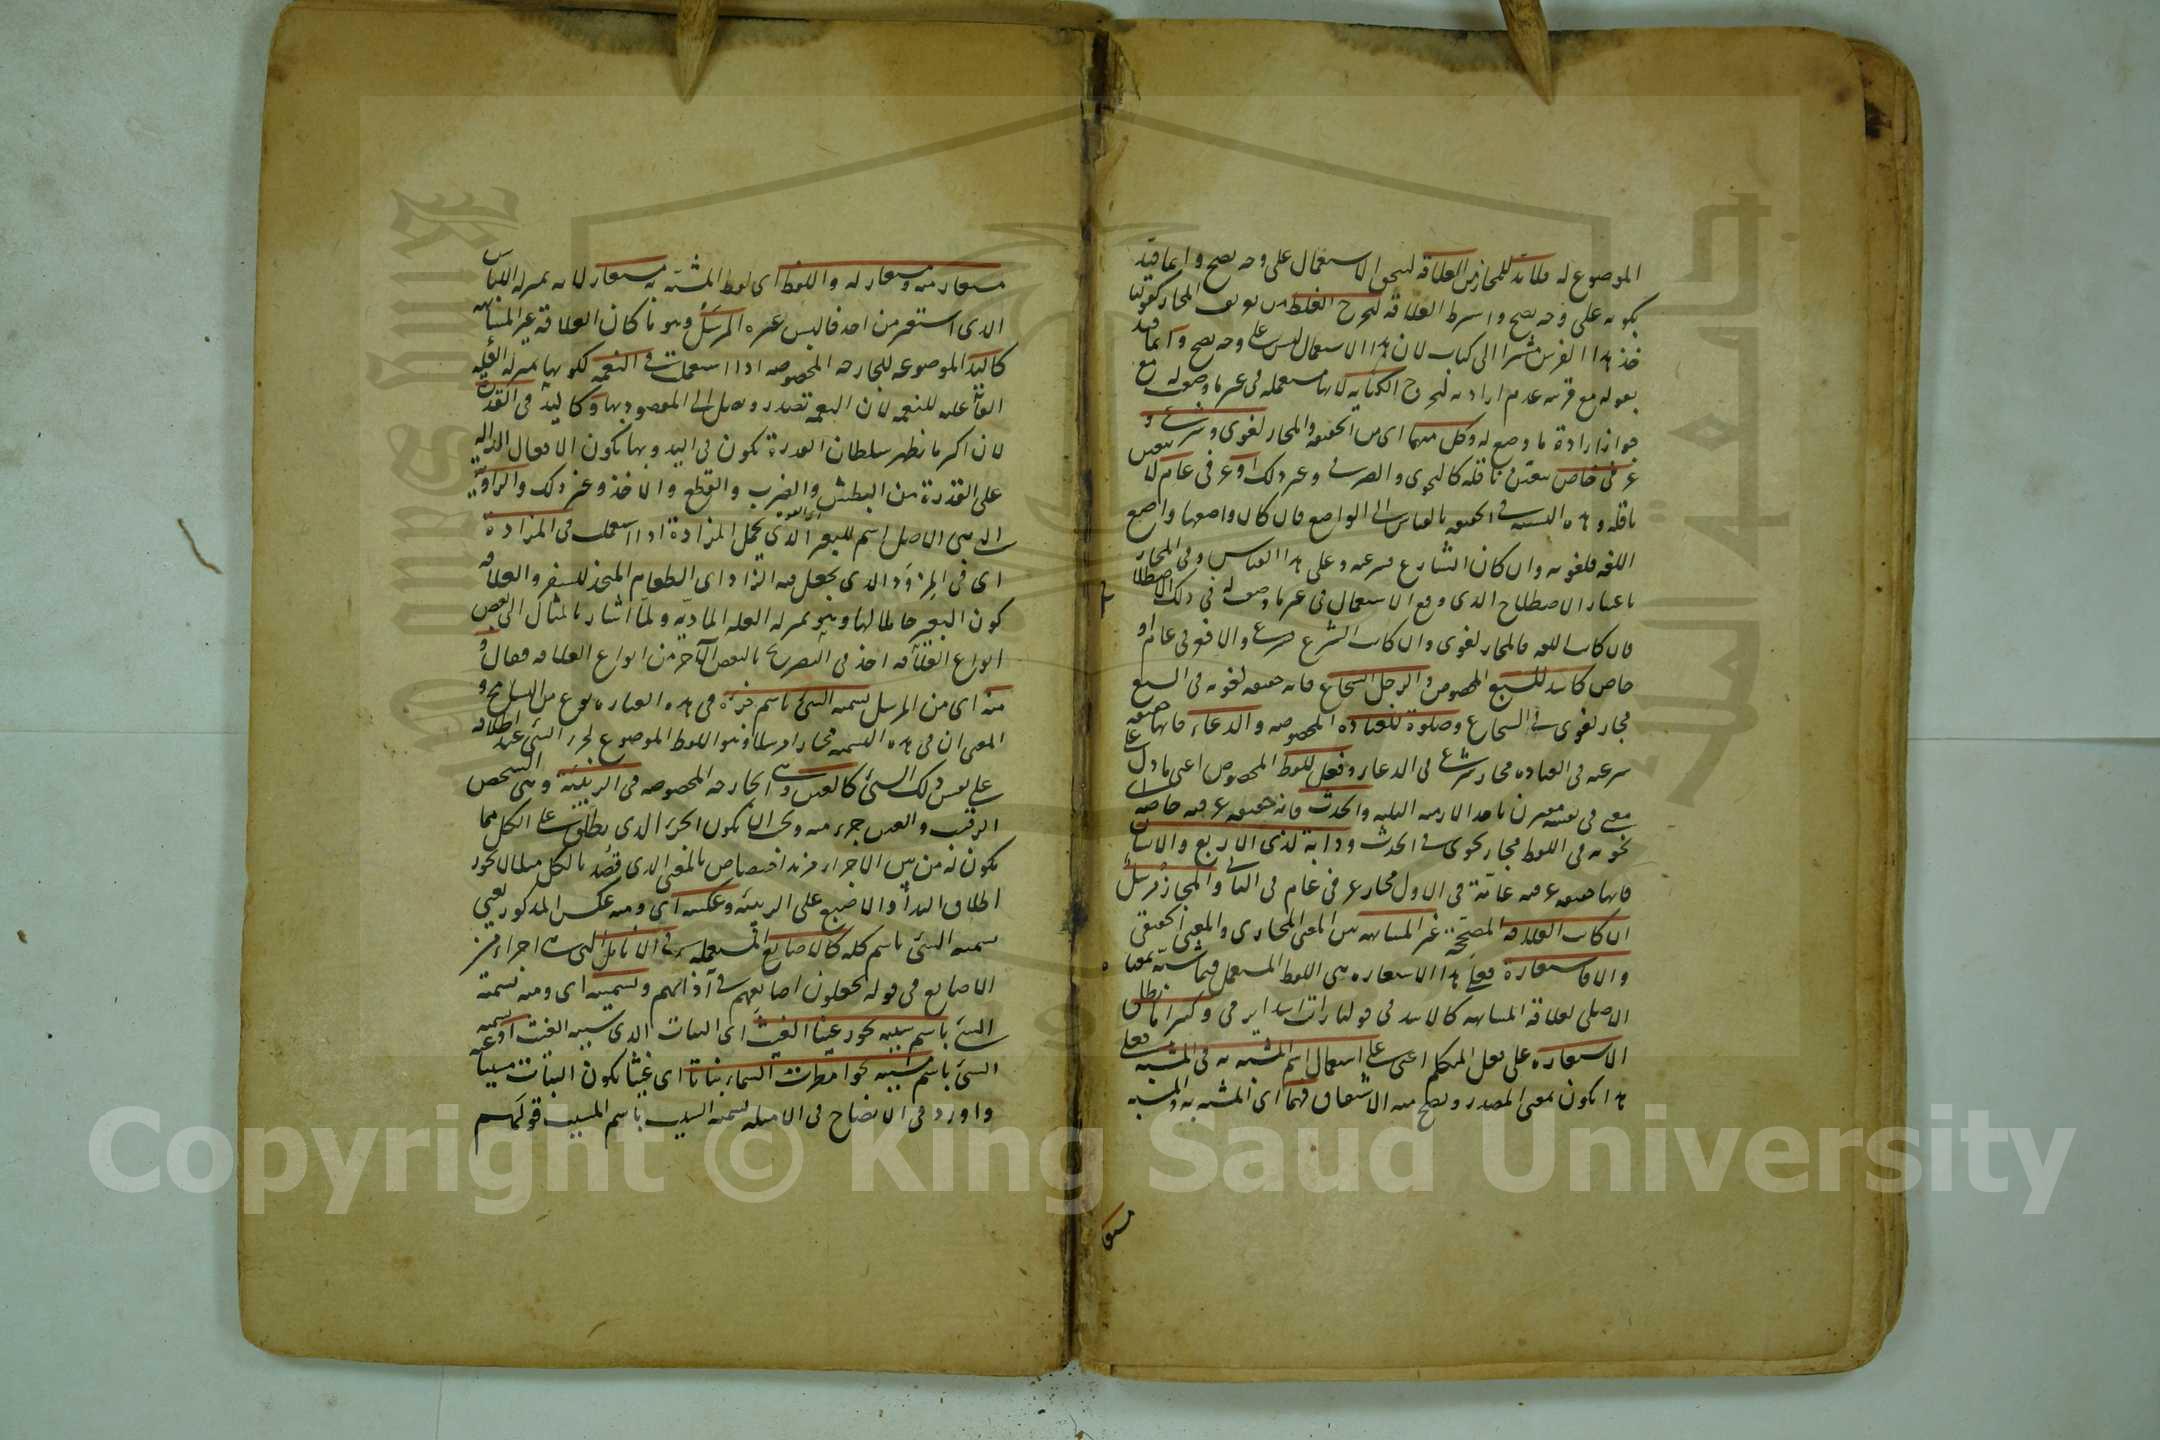 الموضوع له فلا بد للمجاز من العلاقة ليتحقق الاستعمال على وجه يصح وانما قيد
بكونه على وجه يصح واشترط العلاقة ليخرج الغلط من تعريف المجاز كقولنا
خذ هذا الفرس مشيرا الى كتاب لان هذا الاستعمال ليس على وجه يصح وانما قيد
بقوله مع قرينة عدم ارادته ليخرج الكناية لانها مستعملة في غير ما وضعت له مع
جواز ارادة ما وضع له وكل منهما اى من الحقيقة والمجاز لغوى وشرعى و
عرفى خاص يتعين ناقله كالنحوى والصرفى وغير ذلك او عرفى عام لا يتعين
ناقله وهذه النسبة فى الحقيقة بالقياس الى الواضع فان كان واضعها واضع
اللغة فلغوية وان كان الشارع فشرعية وعلى هذا القياس وفى المجاز
باعتبار الاصطلاح الذى وقع الاستعمال فى غير ما وضعت له فى ذلك الاصطلاح
فان كان اللغة فالمجاز لغوى وان كان الشرع فشرعى والا فعرفى عام او
خاص كاسد للسبع المخصوص والرجل الشجاع فانه حقيقة لغوية فى السبع
مجاز لغوى فى الشجاع وصلوة للعبادة المخصوصة والدعاء فانها حقيقة
شرعية فى العبادة مجاز شرعى فى الدعاء وفعل للفظ المخصوص اعنى ما دل على
معنى فى نفسه مقترن باحد الازمنة الثلثة والحدث فانه حقيقة عرفية خاصة اى
نحوية فى اللفظ مجاز نحوى فى الحدث ودابة لذى الاربع والانسان
فانها حقيقة عرفية عامة فى الاول مجاز عرفى عام فى الثانى والمجاز مرسل
ان كانت العلاقة المصححة غير المشابهة بين المعنى المجازى والمعنى الحقيقى
والا فاستعارة فعلى هذا الاستعارة هى اللفظ المستعمل فيما شبه بمعناه
الاصلى لعلاقة المشابهة كالاسد فى قولنا رايت اسدا يرمى وكثيرا ما يطلق
الاستعارة على فعل المتكلم اعنى على استعمال اسم المشبه به فى المشبه فعلى
هذا يكون بمعنى المصدر ويصح منه الاشتقاق فهما اى المشبه به والمشبه
مستعار منه ومستعار له واللفظ اى لفظ المشبه به مستعار لانه بمنزلة اللباس
الذى استعير من احد فالبس غيره والمرسل وهو ما كان العلاقة غير المشابهة
كاليد الموضوعة للجارحة المخصوصة اذا استعملت فى النعمة لكونها بمنزلة العلة
الفاعلية للنعمة لان النعمة تصدر وتصل الى المقصود بها وكاليد فى القدرة
لان اكثر ما يظهر سلطان القدرة تكون فى اليد وبها تكون الافعال الدالة
على القدرة من البطش والضرب والقطع والاخذ وغير ذلك والراوية
التى هى فى الاصل اسم للبعير الذى يحمل المزادة اذا استعملت فى المزادة
اى فى المزود الذى يجعل فيه الزاد اى الطعام المتخذ للسفر والعلاقة
كون البعير حاملا لها وهو بمنزلة العلة المادية ولما اشار بالمثال الى بعض
انواع العلاقة اخذ فى التصريح بالبعض الآخر من انواع العلاقة فقال و
منه اى من المرسل تسمية الشئ باسم جزئه فى هذه العبارة نوع من التسامح و
المعنى ان فى هذه التسمية مجازا مرسلا وهو اللفظ الموضوع لجزء الشئ عند اطلاقه
على نفس ذلك الشئ كالعين وهى الجارحة المخصوصة فى الربيئة وهى الشخص
الرقيب والعين جزء منه ويجب ان يكون الجزء الذى يطلق على الكل مما
يكون له من بين الاجزاء مزيد اختصاص بالمعنى الذى قصد بالكل مثلا لا يجوز
اطلاق اليد او الاصبع على الربيئة وعكسه اى ومنه عكس المذكور يعنى
تسمية الشئ باسم كله كالاصابع المستعملة فى الانامل التى هى اجزاء من
الاصابع فى قوله يجعلون اصابعهم فى آذانهم وتسميته اى ومنه تسمية
الشئ باسم سببه نحو رعينا الغيث اى النبات الذى سببه الغيث او تسمية
الشئ باسم مسببه نحو امطرت السماء نباتا اى غيثا لكون النبات مسببا عنه
واورد فى الايضاح فى الامثلة تسمية السبب باسم المسبب قولهم
مستعار